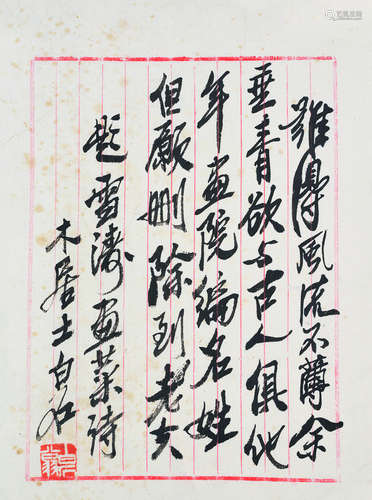 難得風流不薄余
垂青欲与古人俱他
年畫院編名姓
但願刪除到老夫
題雪濤畫菜詩
木居士白石